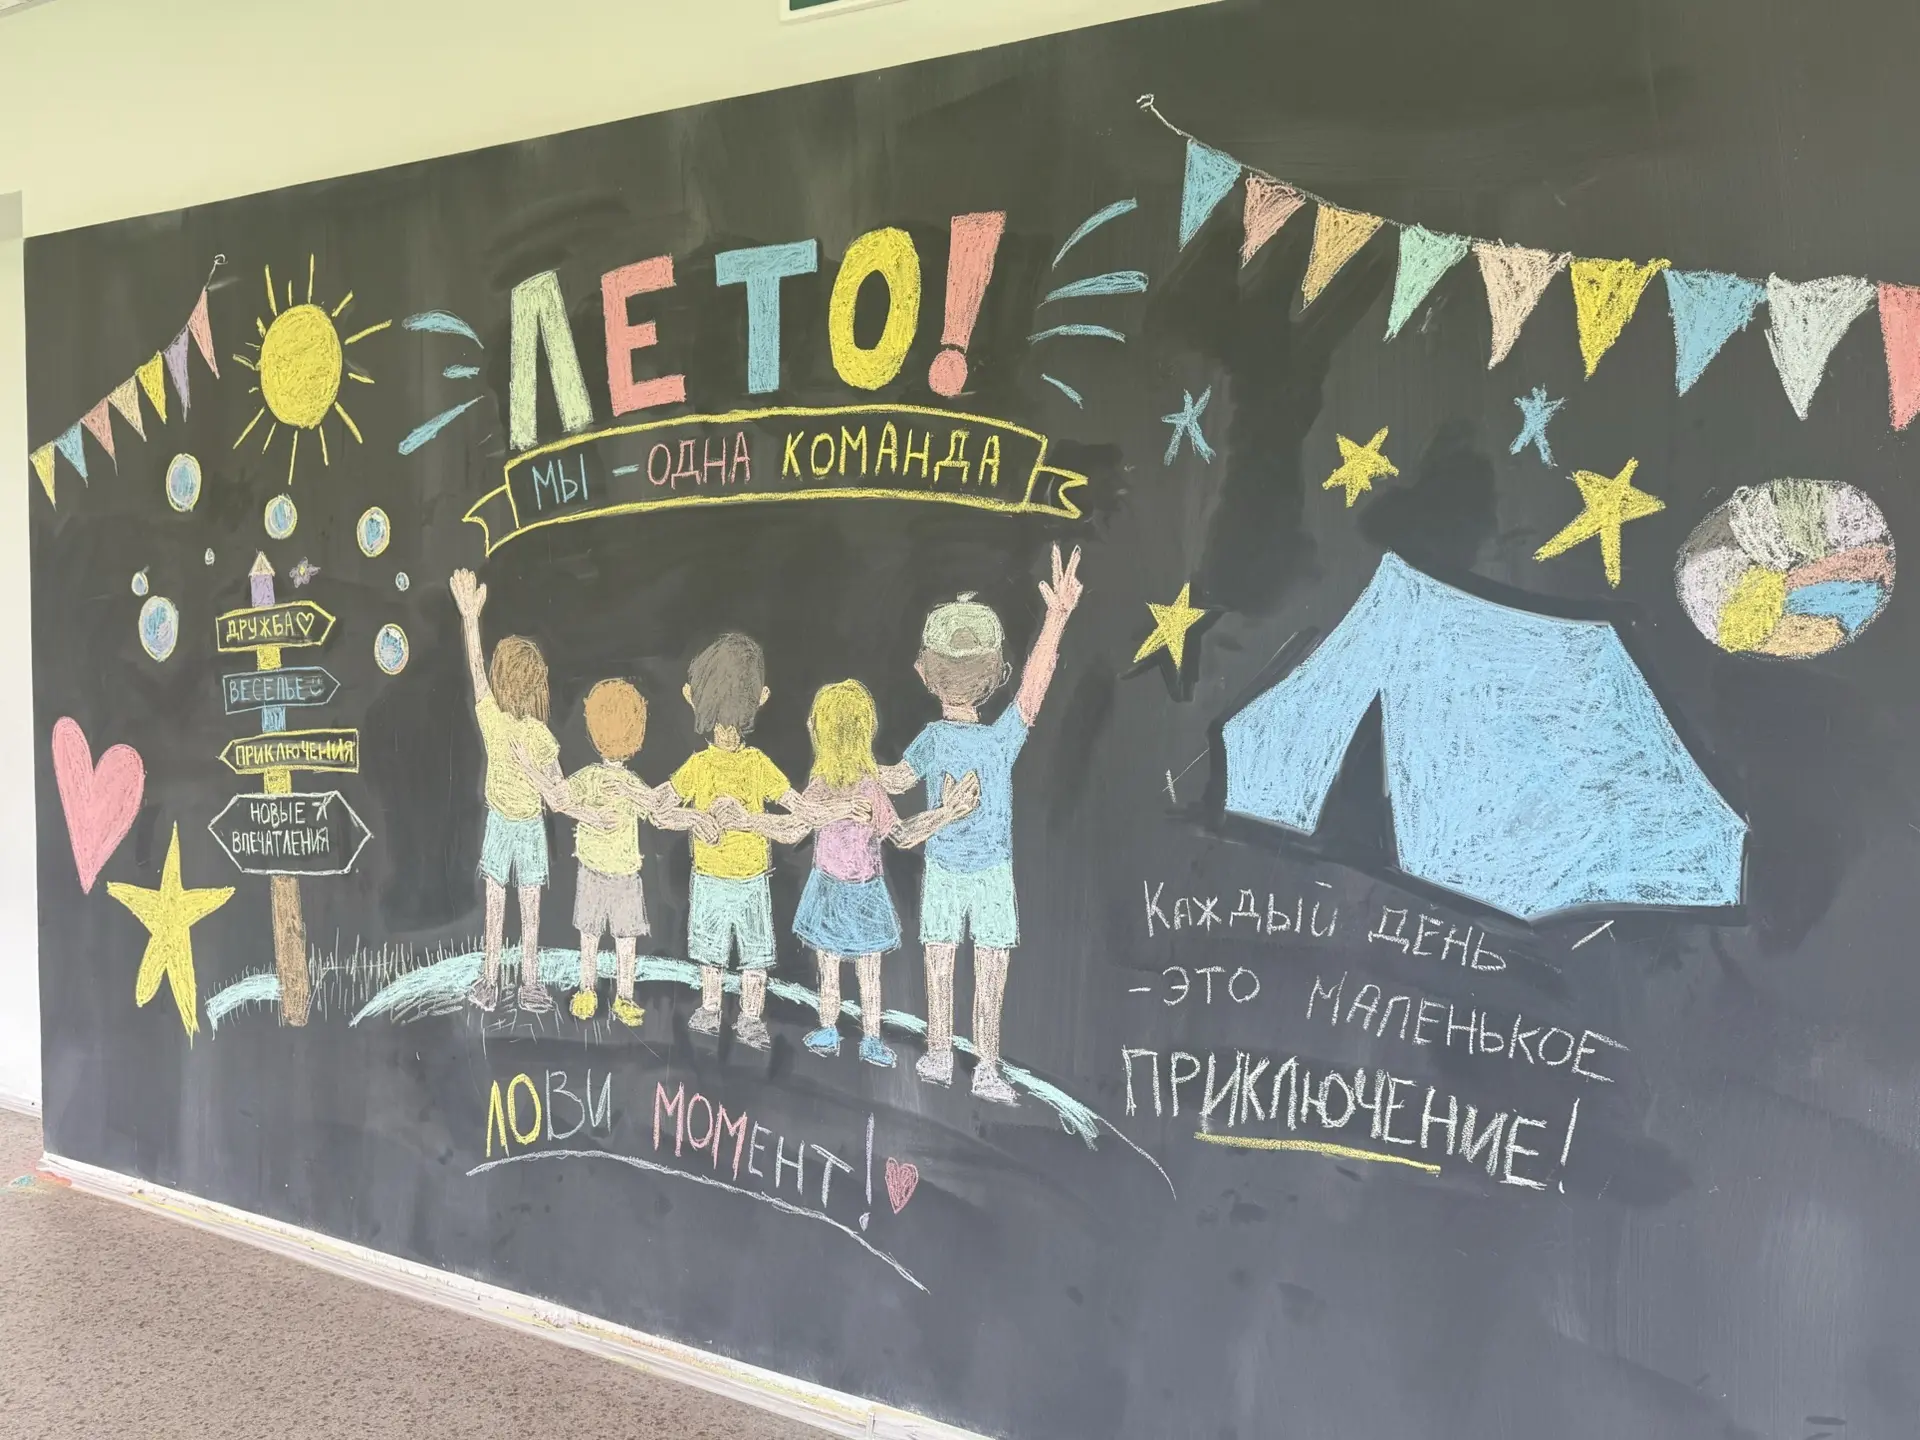 ЛЕТО!
МЫ - ОДНА КОМАНДА
ДРУЖБА
ВЕСЕЛЬЕ
ПРИКЛЮЧЕНИЯ
НОВЫЕ
ВПЕЧАТЛЕНИЯ
ЛОВИ МОМЕНТ!
КАЖДЫЙ ДЕНЬ
- ЭТО МАЛЕНЬКОЕ
ПРИКЛЮЧЕНИЕ!